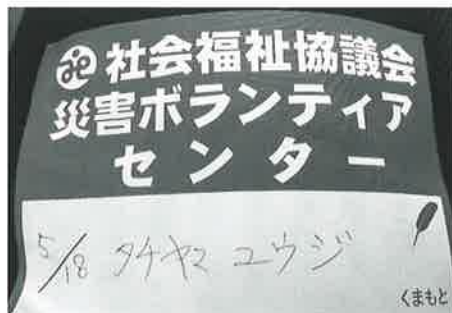 社会福祉協議会
災害ボランティア
センター
5/18 タチヤマ ユウジ
くまもと